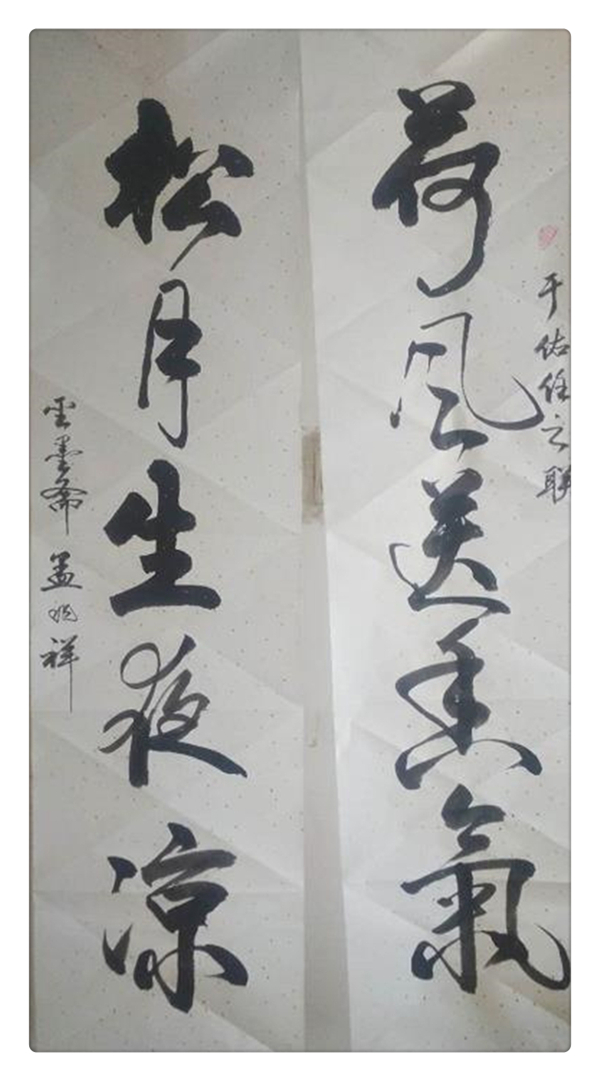 于佑任之联
荷风送香氣
松月生夜凉
云墨斋 孟兆祥